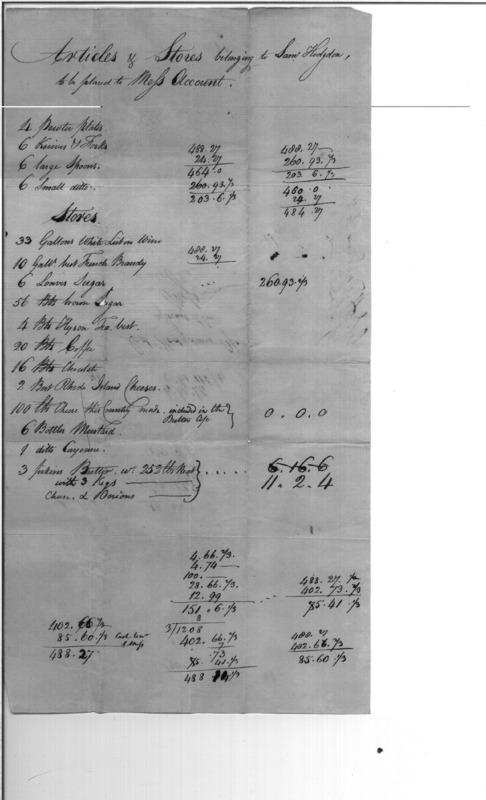 Articles & Stores belonging to Saml Hodgdon,
to be placed to Mess Account.
4 Pewter Plates
6 Knives & Forks
6 large Spoons
6 Small ditto
488.27
24.27
464.0
260.93.⅔
203.6.⅓
488.27
260.93.⅔
203.6.⅓
460.0
24.27
484.27
Stores
33 Gallons White Lisbon Wine
10 Galls best French Brandy
488.27
24.27
6 Loaves Sugar
...
260.93.⅔
56 lbs brown Sugar
4 lbs Hyson Tea best
20 lbs Coffee
16 lbs Chocolate
2 Best Rhode Island Cheeses.
100 lbs Cheese this Country made. included in the
Butter
0.0.0
6 Bottles Mustard
1 ditto Cayenne
3 firkins Butter wt. 253 lbs
.....
6.16.6
with 3 Kegs
11.2.4
Cheese &
4.66.⅔
4.74
100.
28.66.⅔
12.99
151.6.⅓
8
3/1208
402.66.⅔
.73
85.41.⅓
488
488.27
402.73.⅔
85.41.⅓
402.66⅔
85.60.⅓
488.27
488.27
402.66.⅔
85.60.⅓